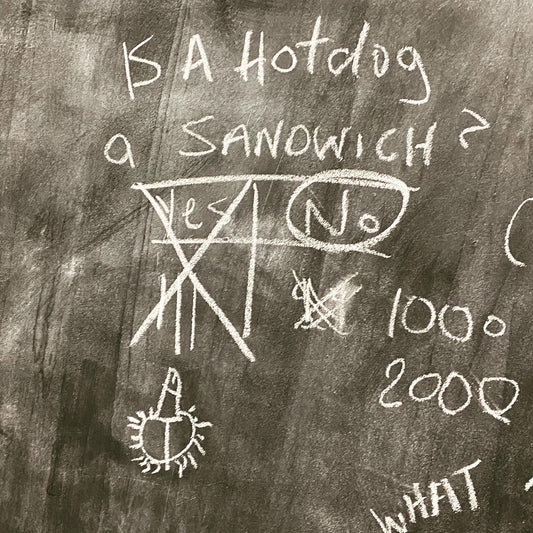 IS A Hotdog
a SANDWICH?
Yes No
1000
2000
WHAT